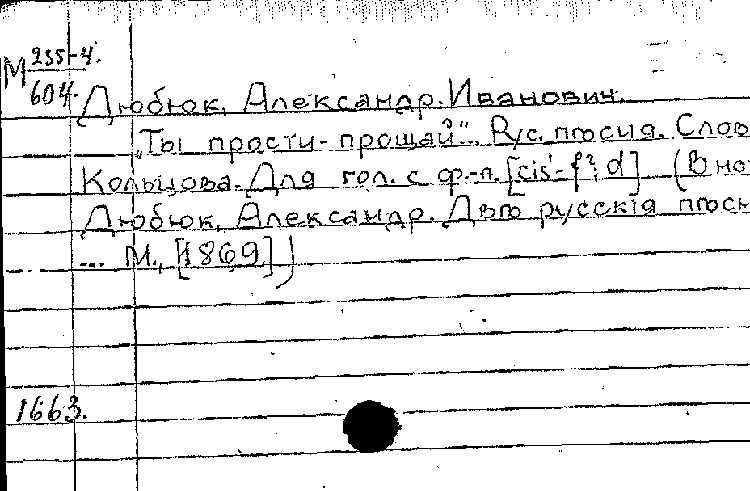 М 255-4.
604.
Дюбюк, Александр. Иванович.
"Ты прости-прощай".. Рус. пѣсня. Слов
Кольцова. Для гол. с ф.-п. [cis'-f²; d] (В но
Дюбюк, Александр. Двѣ русскія пѣсн
... М., [1869])
1663.